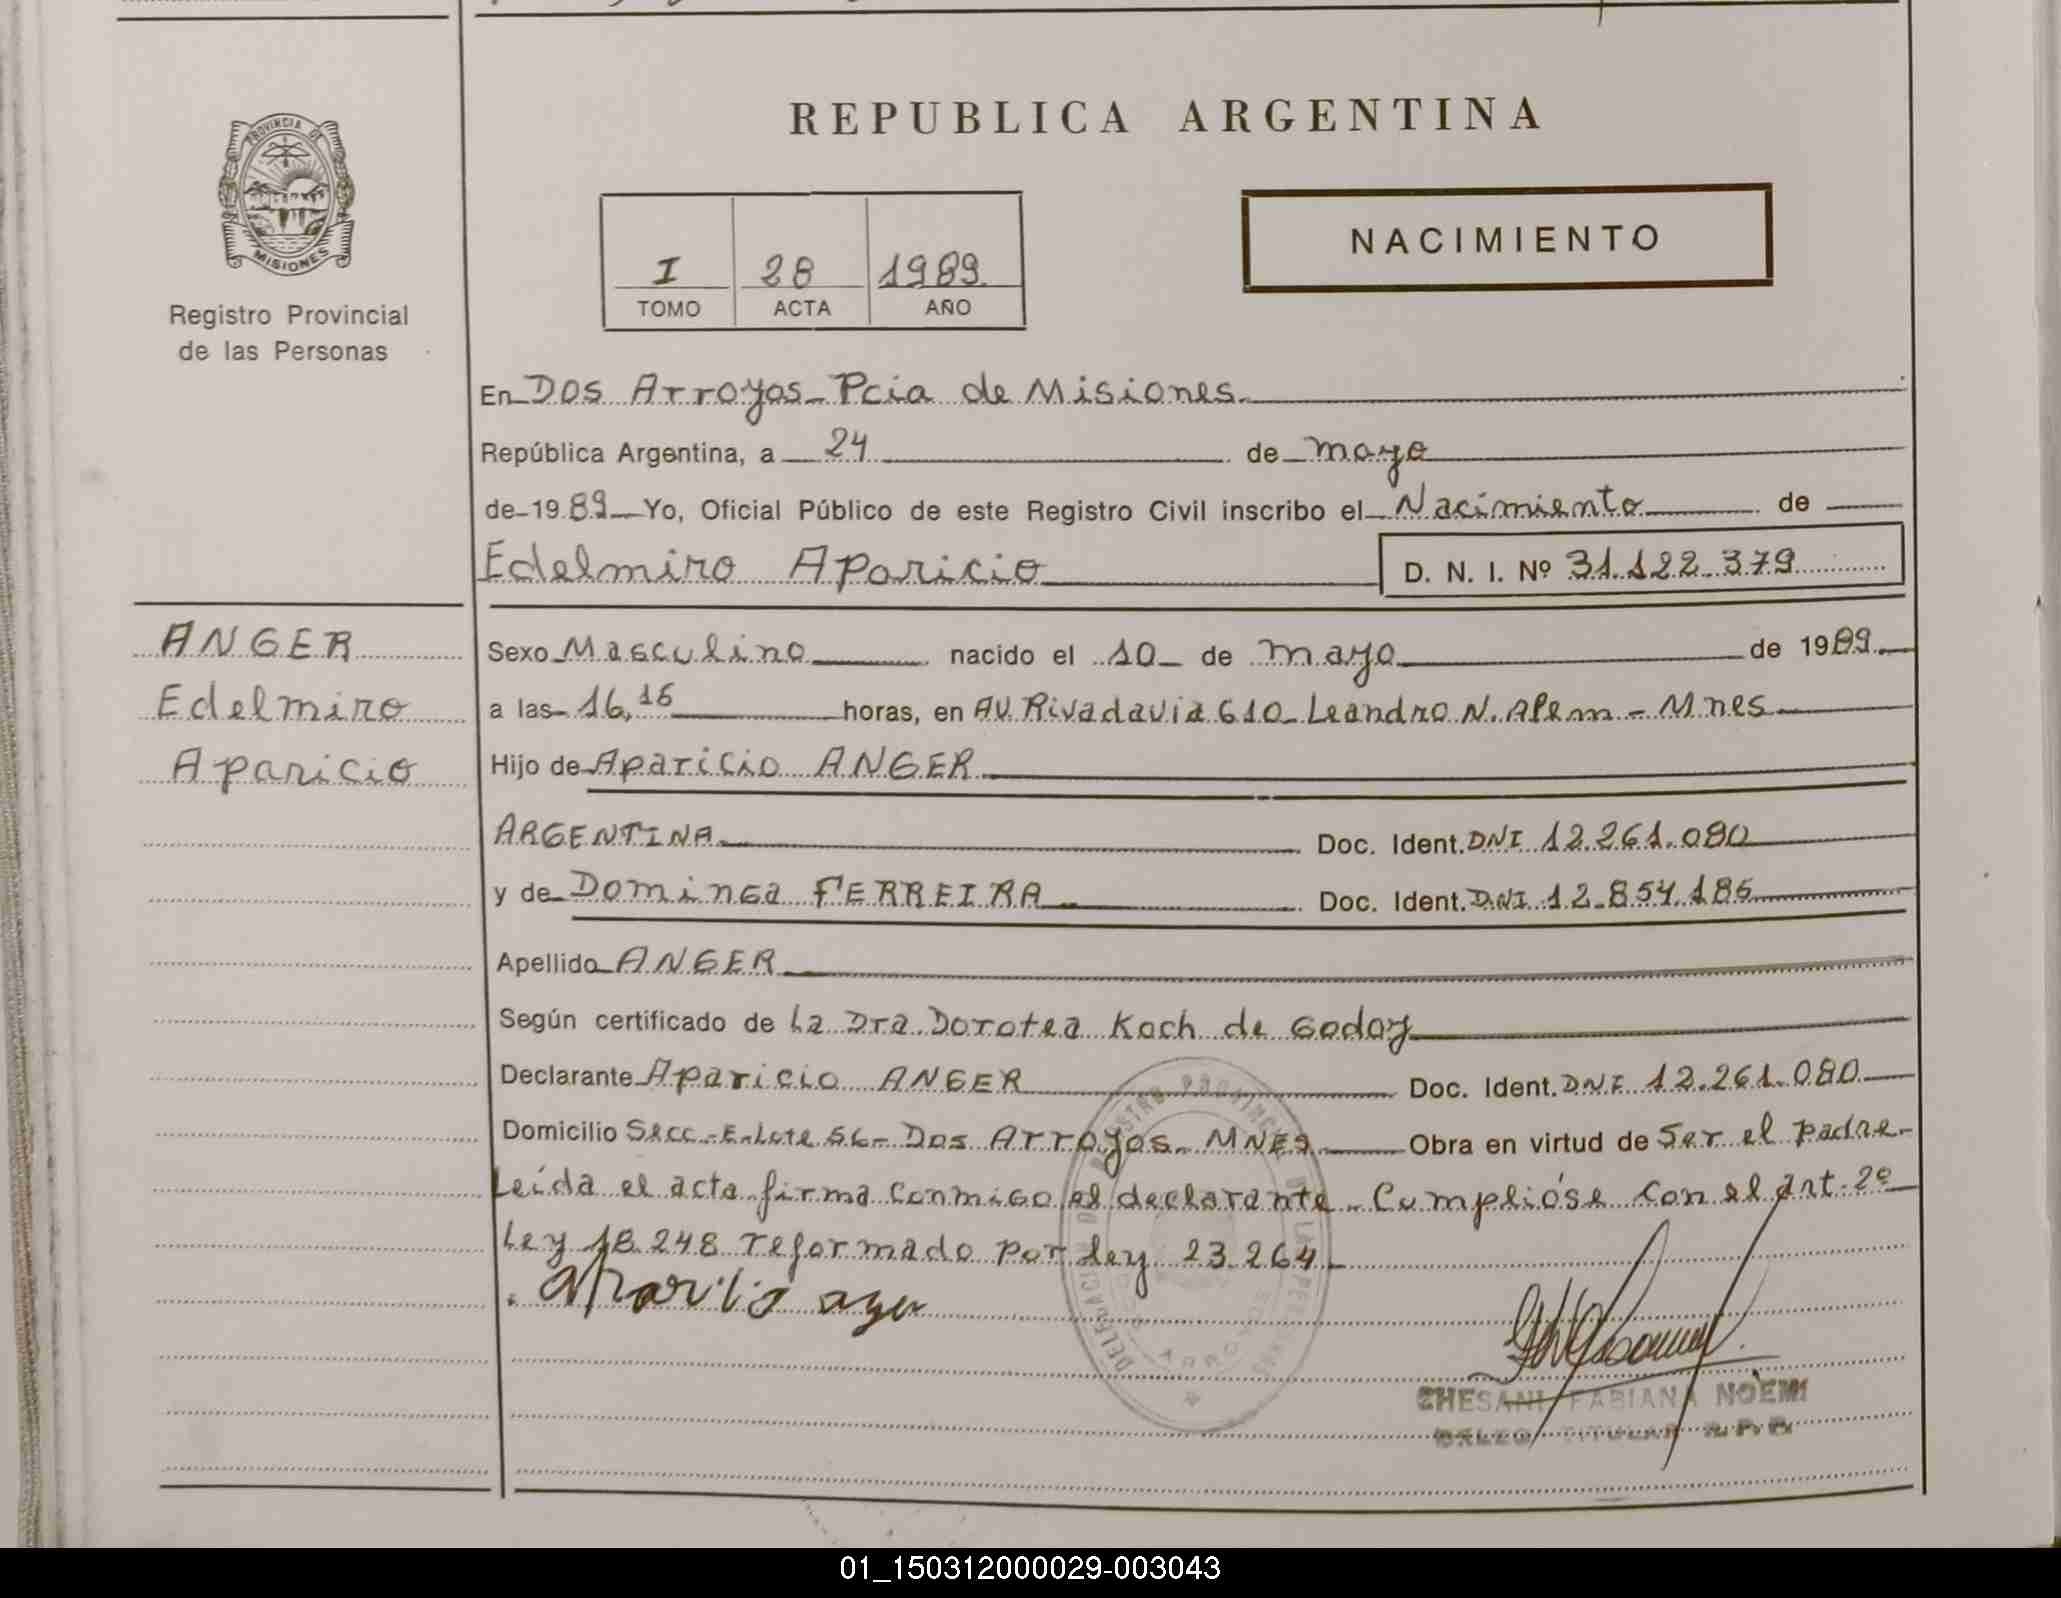 PROVINCIA DE
MISIONES
Registro Provincial
de las Personas
REPUBLICA ARGENTINA
I 28 1989
TOMO ACTA AÑO
NACIMIENTO
En Dos Arroyos - Pcia de Misiones.
República Argentina, a 24 de mayo
de 1989 Yo, Oficial Público de este Registro Civil inscribo el Nacimiento de
Edelmiro Aparicio D. N. I. Nº 31.122.379
ANGER
Edelmiro
Aparicio
Sexo Masculino nacido el 10 de mayo de 1989
a las 16,15 horas, en AV. Rivadavia 610 - Leandro N. Alem - Mnes
Hijo de Aparicio ANGER
ARGENTINA Doc. Ident. DNI 12.261.080
y de Dominga FERREIRA Doc. Ident. DNI 12.854.185
Apellido ANGER
Según certificado de La Dra. Dorotea Koch de Godoy
Declarante Aparicio ANGER Doc. Ident. DNI 12.261.080
Domicilio Secc.-E-Lote 56- Dos Arroyos - MNES Obra en virtud de Ser el padre-
Leída el acta firma conmigo el declarante - Cumplióse con el art. 2º
Ley 18.248 reformado por ley 23.264 -
Aparicio Anger
DELEGACION DEL REGISTRO PROVINCIAL DE LAS PERSONAS
DOS ARROYOS
CHESANI FABIANA NOEMI
TITULAR R.P.P.
01_150312000029-003043